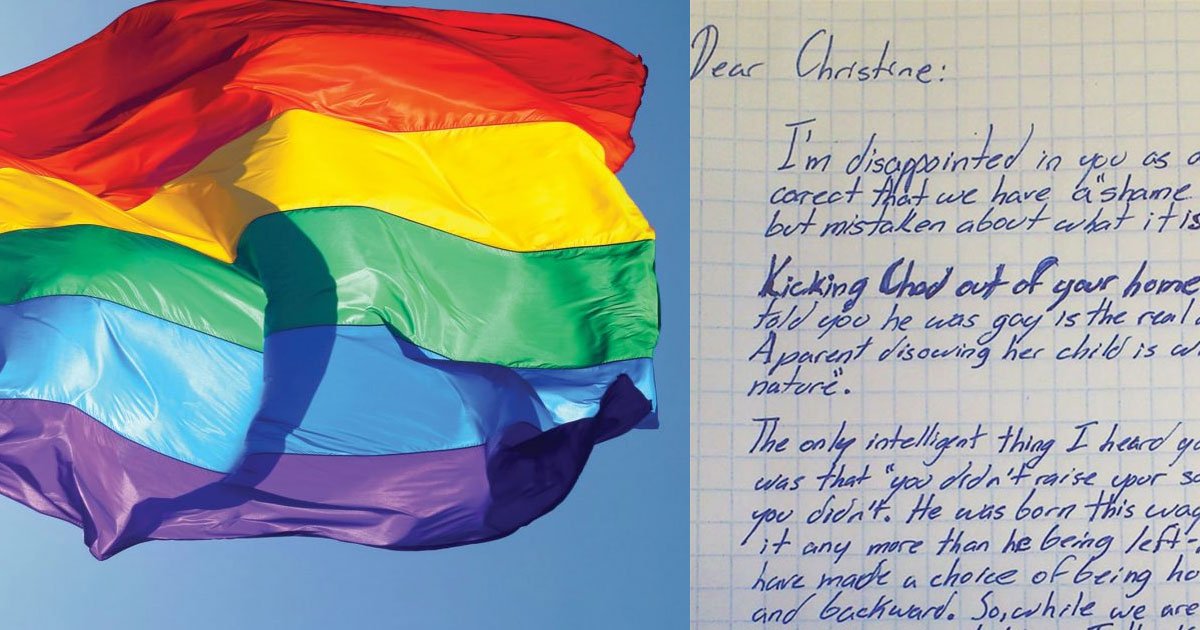 Dear Christine:
I'm disappointed in you as a
corect that we have a "shame
but mistaken about what it is
Kicking Chad out of your home
told you he was gay is the real
A parent disowing her child is w
nature".
The only intelligent thing I heard yo
was that "you didn't raise your s
you didn't. He was born this way
it any more than he being left-
have made a choice of being ho
and backward. So, while we are